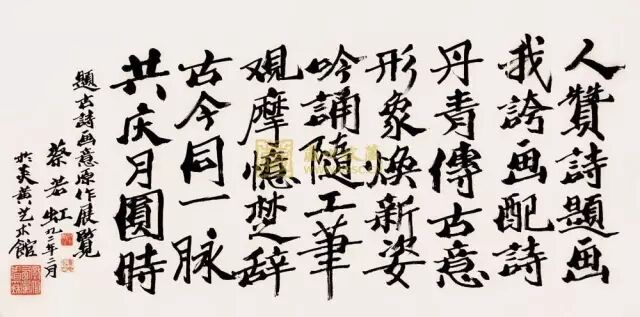 人赞诗题画
我誇画配詩
丹青傳古意
形象焕新姿
吟誦随工筆
观摩憶楚辞
古今同一脉
共庆月圓時
題古詩画意原作展覽
蔡若虹 九二年二月
於炎黄艺术館